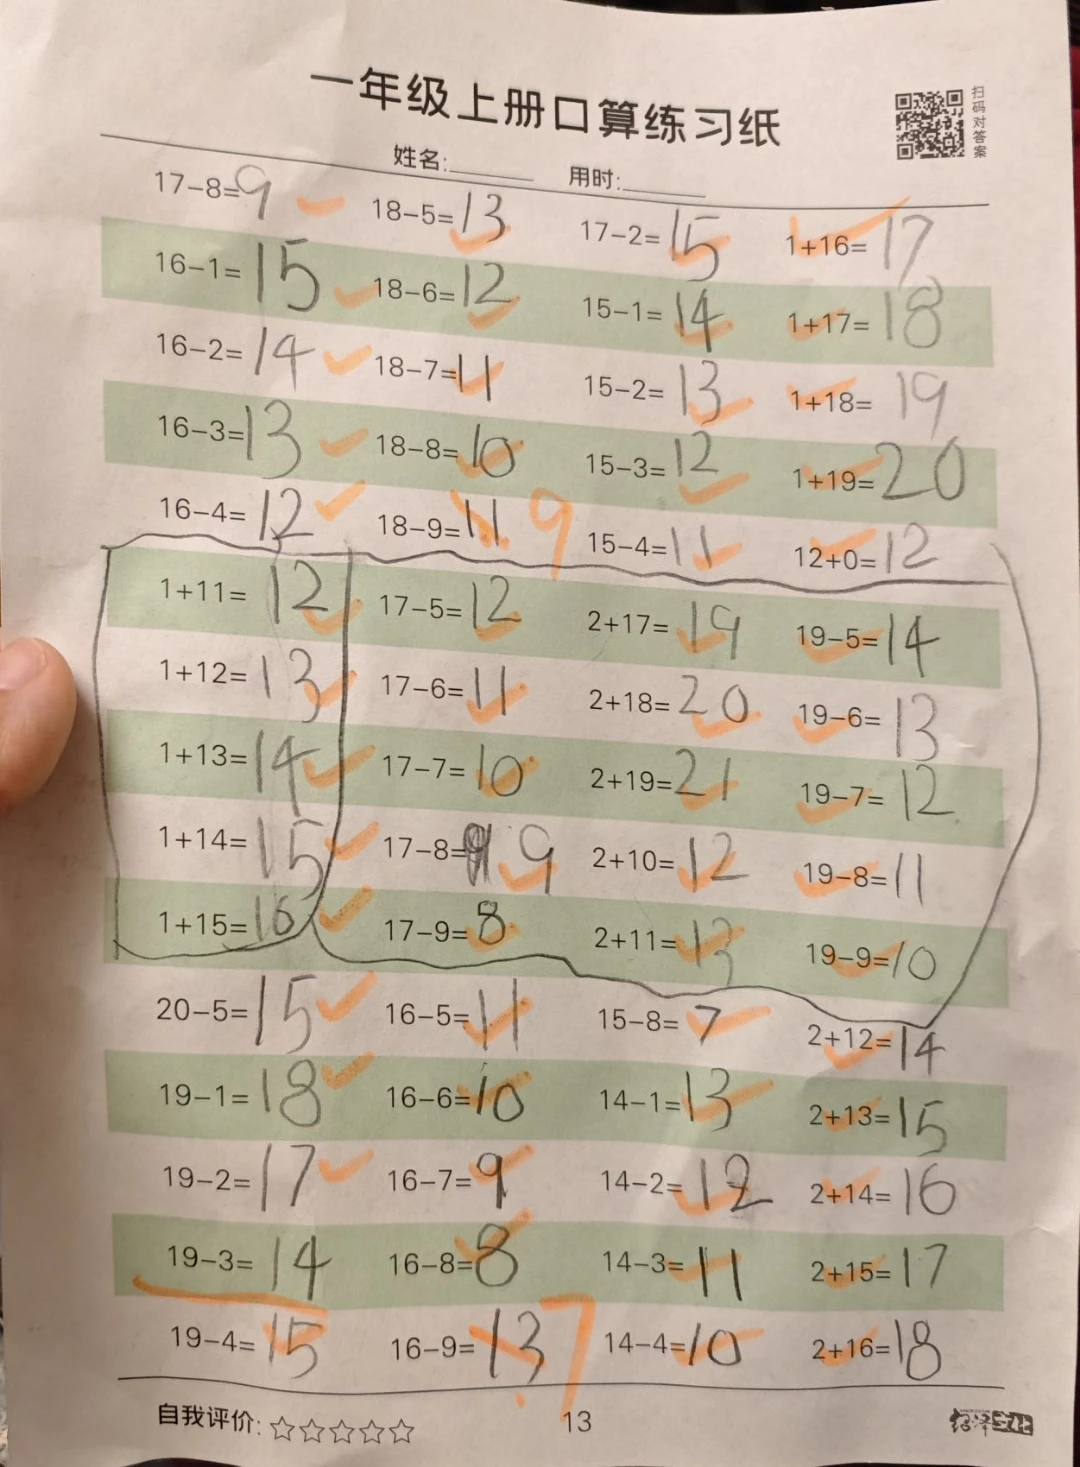 一年级上册口算练习纸
扫码对答案
姓名:______ 用时:______
17-8=9 18-5=13 17-2=15 1+16=17
16-1=15 18-6=12 15-1=14 1+17=18
16-2=14 18-7=11 15-2=13 1+18=19
16-3=13 18-8=10 15-3=12 1+19=20
16-4=12 18-9=11 9 15-4=11 12+0=12
1+11=12 17-5=12 2+17=19 19-5=14
1+12=13 17-6=11 2+18=20 19-6=13
1+13=14 17-7=10 2+19=21 19-7=12
1+14=15 17-8=9 2+10=12 19-8=11
1+15=16 17-9=8 2+11=13 19-9=10
20-5=15 16-5=11 15-8=7 2+12=14
19-1=18 16-6=10 14-1=13 2+13=15
19-2=17 16-7=9 14-2=12 2+14=16
19-3=14 16-8=8 14-3=11 2+15=17
19-4=15 16-9=13 7 14-4=10 2+16=18
自我评价:☆☆☆☆☆ 13